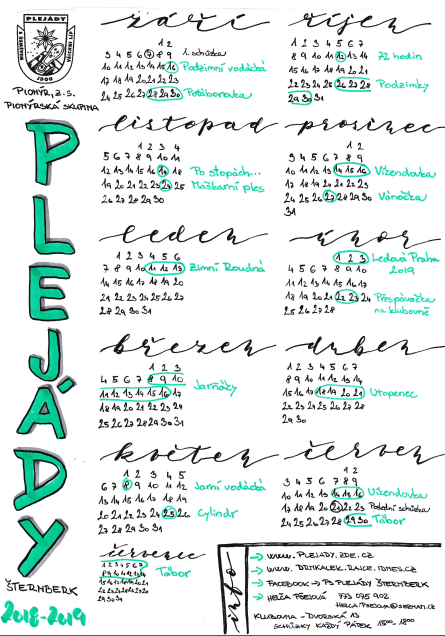 PLEJÁDY
1990
PIONÝR, Z.S.
PIONÝRSKÁ SKUPINA
PLEJÁDY
ŠTERNBERK
2018-2019
září
1 2
3 4 5 6 7 8 9 1. schůzka
10 11 12 13 14 15 16 Podzimní vodácká
17 18 19 20 21 22 23
24 25 26 27 28 29 30 Putáborovka
říjen
1 2 3 4 5 6 7
8 9 10 11 12 13 14 72 hodin
15 16 17 18 19 20 21
22 23 24 25 26 27 28 Podzimky
29 30 31
listopad
1 2 3 4
5 6 7 8 9 10 11
12 13 14 15 16 17 18 Po stopách...
19 20 21 22 23 24 25 Maškarní ples
26 27 28 29 30
prosinec
1 2
3 4 5 6 7 8 9
10 11 12 13 14 15 16 Víkendovka
17 18 19 20 21 22 23
24 25 26 27 28 29 30 Vánočka
31
leden
1 2 3 4 5 6
7 8 9 10 11 12 13 Zimní Roudná
14 15 16 17 18 19 20
21 22 23 24 25 26 27
28 29 30 31
únor
1 2 3 Ledová Praha
4 5 6 7 8 9 10 2019
11 12 13 14 15 16 17
18 19 20 21 22 23 24 Přespávačka
25 26 27 28 na klubovně
březen
1 2 3
4 5 6 7 8 9 10 Jarňáky
11 12 13 14 15 16 17
18 19 20 21 22 23 24
25 26 27 28 29 30 31
duben
1 2 3 4 5 6 7
8 9 10 11 12 13 14
15 16 17 18 19 20 21 Utopenec
22 23 24 25 26 27 28
29 30
květen
1 2 3 4 5
6 7 8 9 10 11 12 Jarní vodácká
13 14 15 16 17 18 19
20 21 22 23 24 25 26 Cylindr
27 28 29 30 31
červen
1 2
3 4 5 6 7 8 9
10 11 12 13 14 15 16 Víkendovka
17 18 19 20 21 22 23 Poslední schůzka
24 25 26 27 28 29 30 Tábor
červenec
1 2 3 4 5 6 7
8 9 10 11 12 13 14 Tábor
15 16 17 18 19 20 21
22 23 24 25 26 27 28
29 30 31
info
→ WWW. PLEJADY.ZDE.CZ
→ WWW. DRNKALEK.RAJCE.IDNES.CZ
→ FACEBOOK → PS PLEJÁDY ŠTERNBERK
773 075 902
KLUBOVNA - DVORSKÁ 13
SCHŮZKY KAŽDÝ PÁTEK